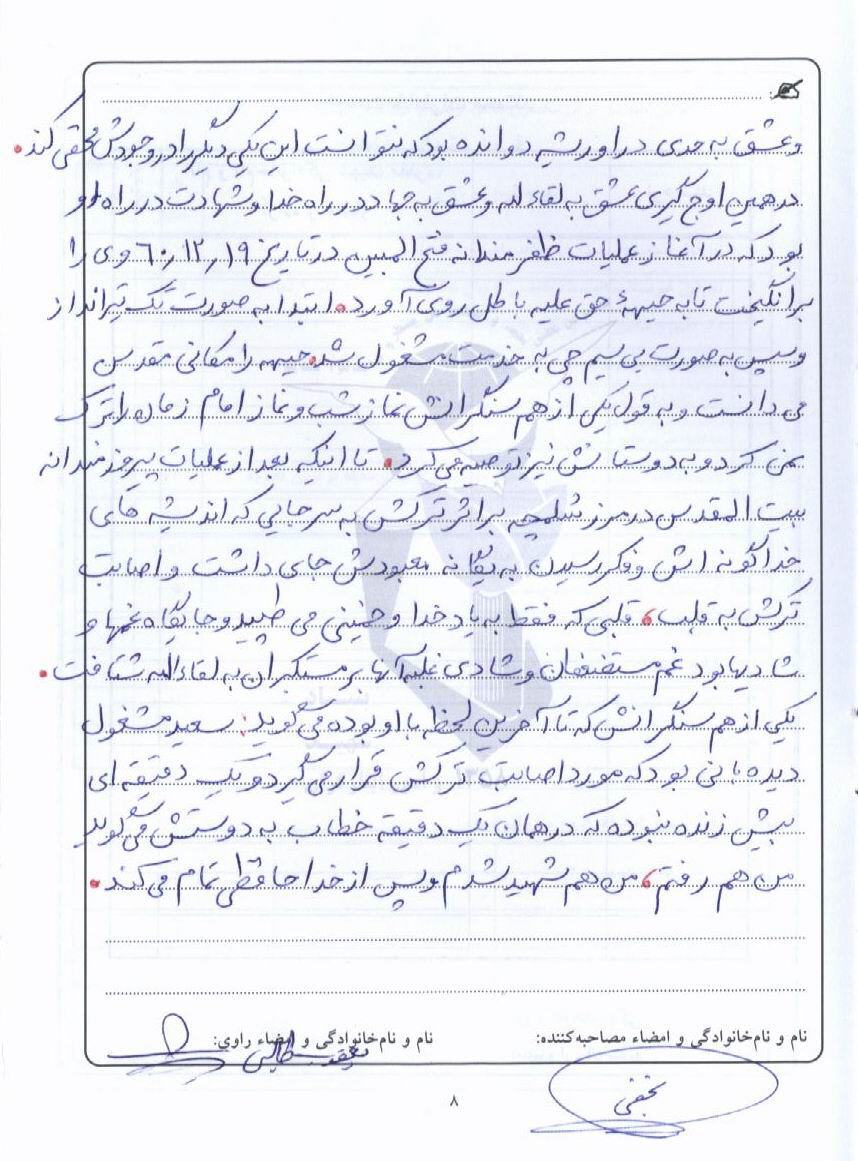 و عشق به حدی در او ریشه دوانده بود که نتوانست این یکی دیگر را در وجودش مخفی کند.
در همین اوج گیری عشق به لقاء الله و عشق به جهاد در راه خدا و شهادت در راه او
بود که در آغاز عملیات ظفرمندانه فتح المبین در تاریخ ۶۰٫۱۲٫۱۹ وی را
برانگیخت تا به جبههٔ حق علیه باطل روی آورد. ابتدا به صورت تک تیرانداز
و سپس به صورت بی سیم چی به خدمت مشغول شد. جبهه را مکانی مقدس
می دانست و به قول یکی از هم سنگرانش نماز شب و نماز امام زمان را ترک
نمی کرد و به دوستانش نیز توصیه می کرد. تا اینکه بعد از عملیات پیروزمندانه
بیت المقدس در مرز شلمچه بر اثر ترکش به سر جایی که اندیشه های
خداگونه اش و فکر رسیدن به یگانه معبودش جای داشت و اصابت
ترکش به قلب، قلبی که فقط به یاد خدا و خمینی می طپید و جایگاه غمها و
شادیها بود غم مستضعفان و شادی غلبه آنها بر مستکبران به لقاء الله شتافت.
یکی از هم سنگرانش که تا آخرین لحظه با او بوده می گوید: سعید مشغول
دیده بانی بود که مورد اصابت ترکش قرار می گیرد و یک دقیقه ای
بیش زنده نبوده که در همان یک دقیقه خطاب به دوستش می گوید
من هم رفتم، من هم شهید شدم و پس از خداحافظی تمام می کند.
نام و نام‌خانوادگی و امضاء مصاحبه‌کننده: نام و نام‌خانوادگی و امضاء راوی:
نجفی
۸